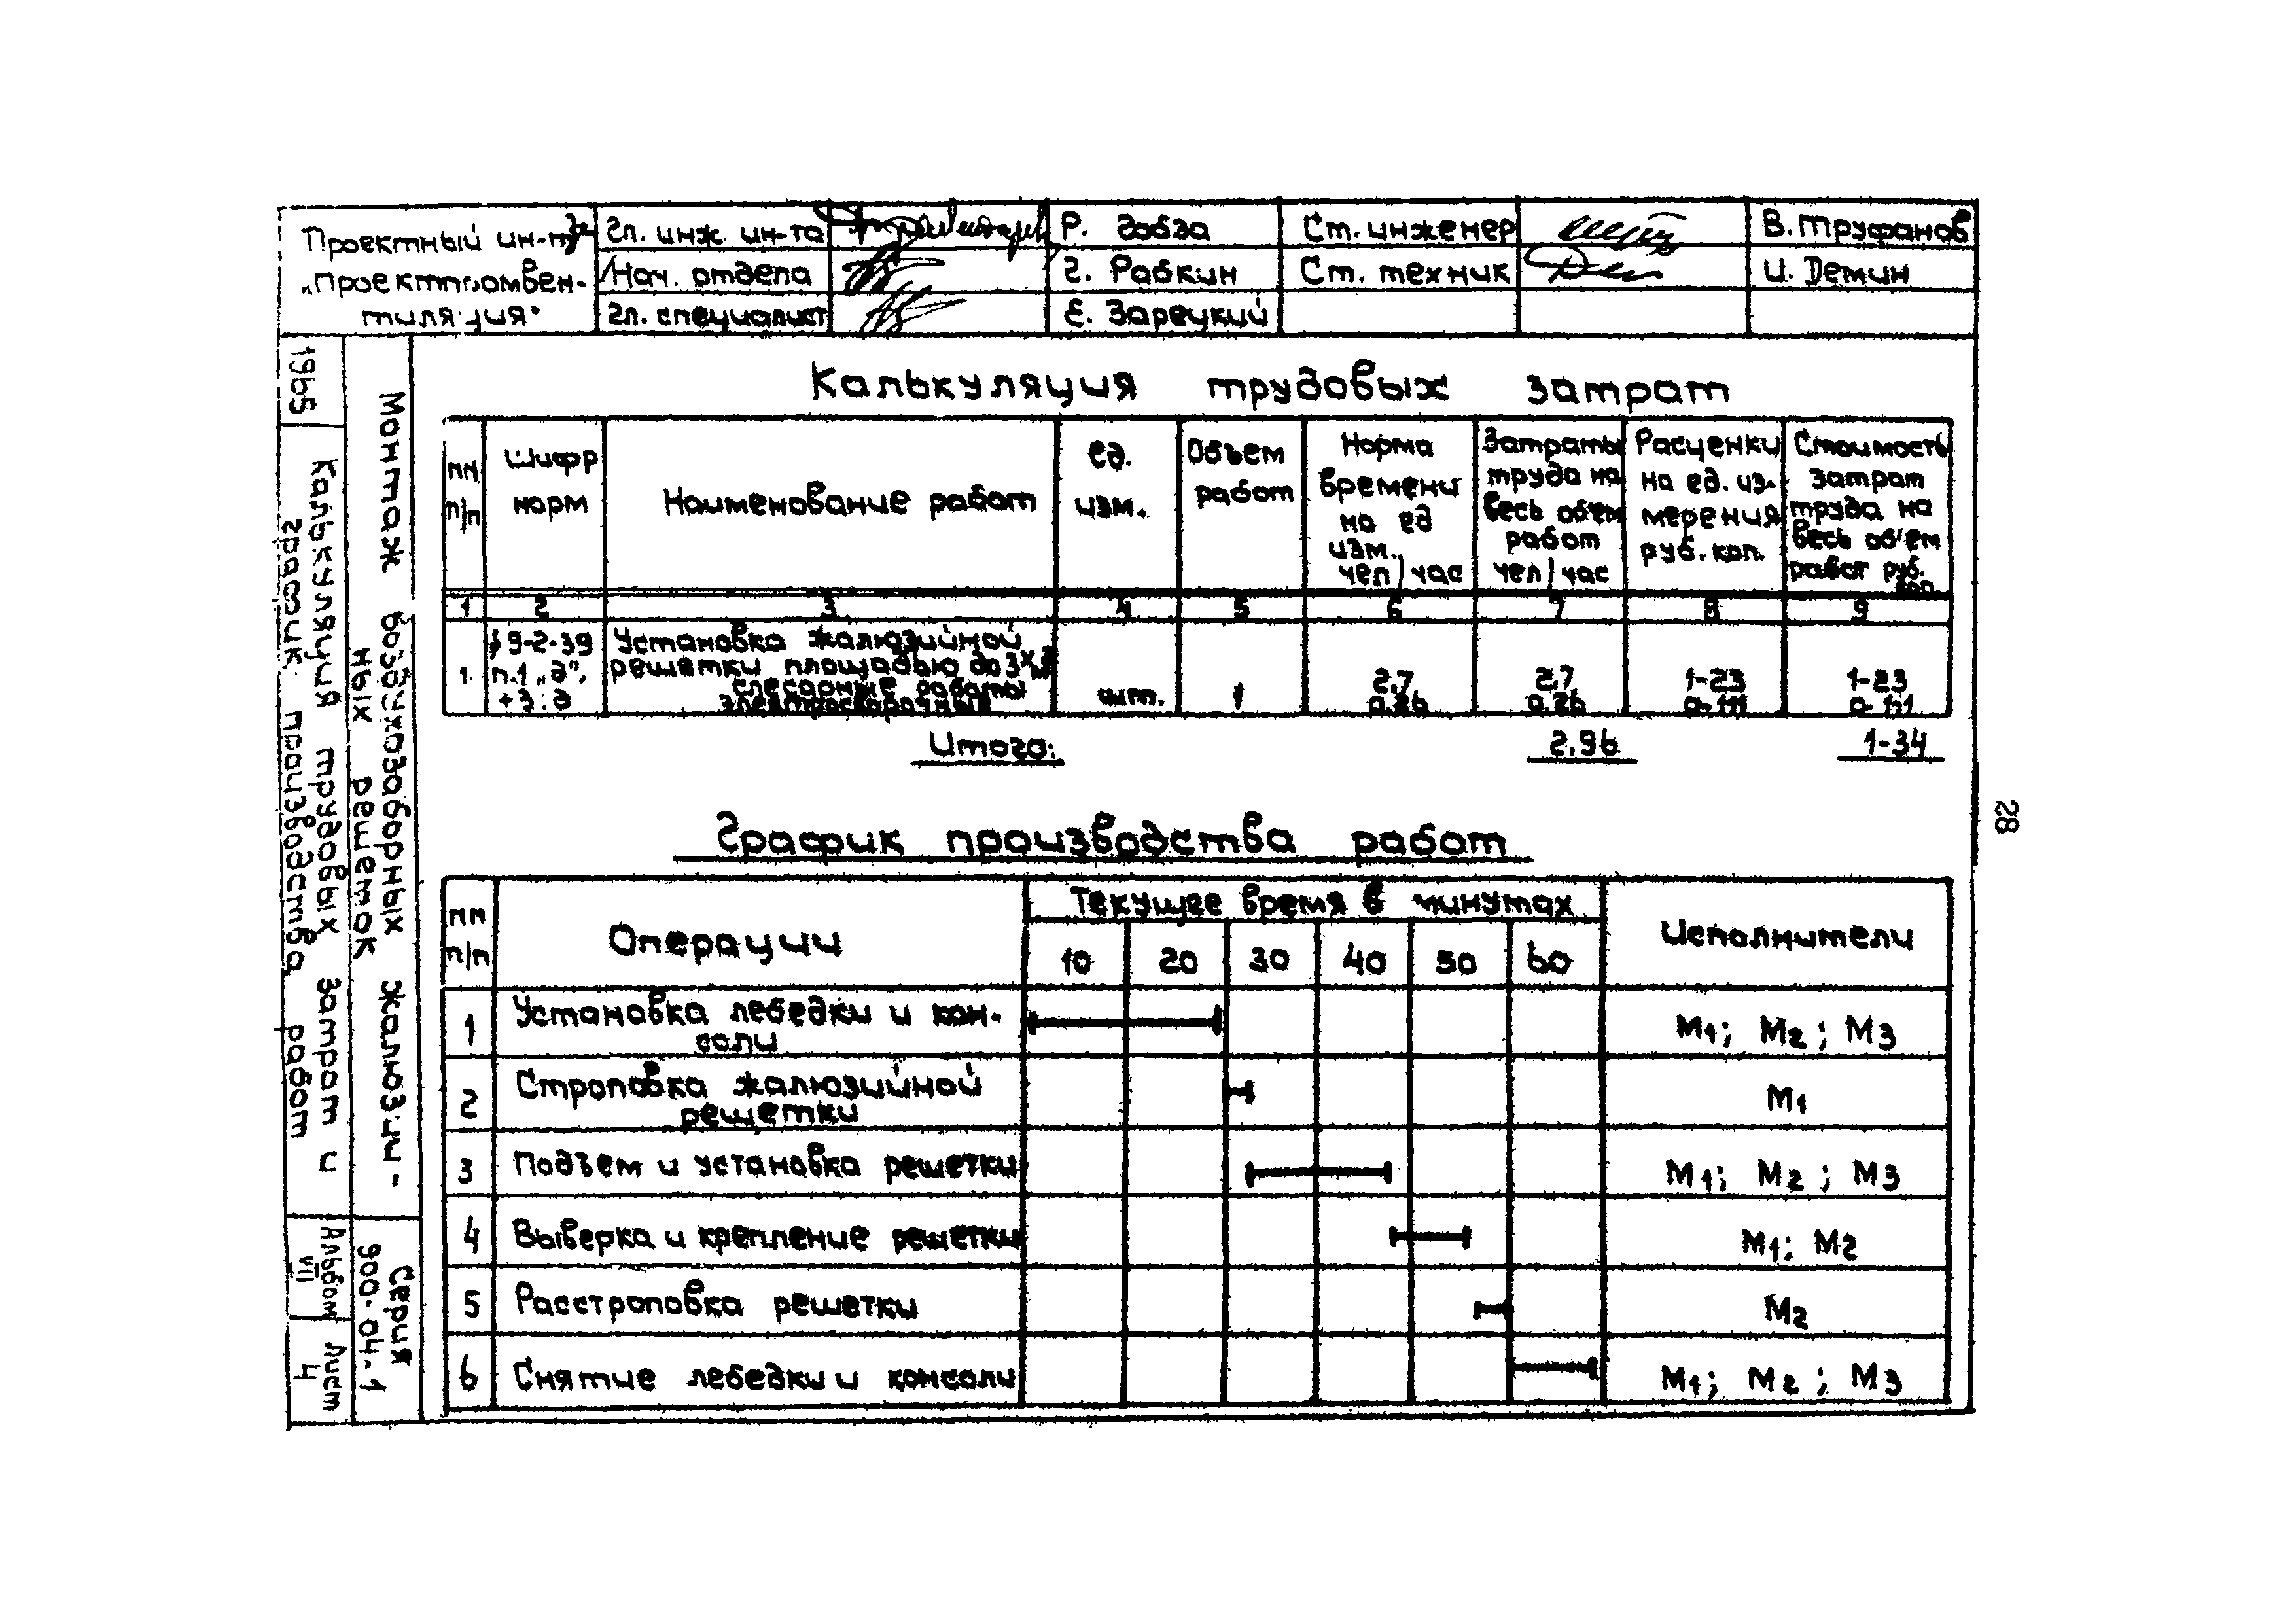 Проектный ин-т
„Проектпромвен-
тиляция"
Гл. инж. ин-та
Р. Добза
Ст. инженер
В. Труфанов
Нач. отдела
Г. Рабкин
Ст. техник
И. Демин
Гл. специалист
Е. Зарецкий
1965
Калькуляция трудовых затрат и
график производства работ
Монтаж воздухозаборных жалюзий-
ных решеток
Альбом
VII
Лист
4
Серия
900-04-1
Калькуляция трудовых затрат
пп
п/п
Шифр
норм
Наименование работ
ед.
изм.
Объем
работ
Норма
времени
на ед
изм.
чел/час
Затраты
труда на
весь объем
работ
чел/час
Расценки
на ед. из-
мерения
руб. коп.
Стоимость
затрат
труда на
весь об'ем
работ руб.
коп.
1 2 3 4 5 6 7 8 9
1.
§ 9-2-39
п.1 „д",
+3:д
Установка жалюзийной
решетки площадью до 3
слесарные работы
электросварочные
шт.
1
2,7
0,26
2,7
0,26
1-23
0-111
1-23
0-111
Итого: 2,96 1-34
28
График производства работ
пп
п/п
Операции
Текущее время в минутах
10 20 30 40 50 60
Исполнители
1 Установка лебедки и кон-
соли
М1; М2; М3
2 Строповка жалюзийной
решетки
М1
3 Подъем и установка решетки М1; М2; М3
4 Выверка и крепление решетки М1; М2
5 Расстроповка решетки М2
6 Снятие лебедки и консоли М1; М2; М3